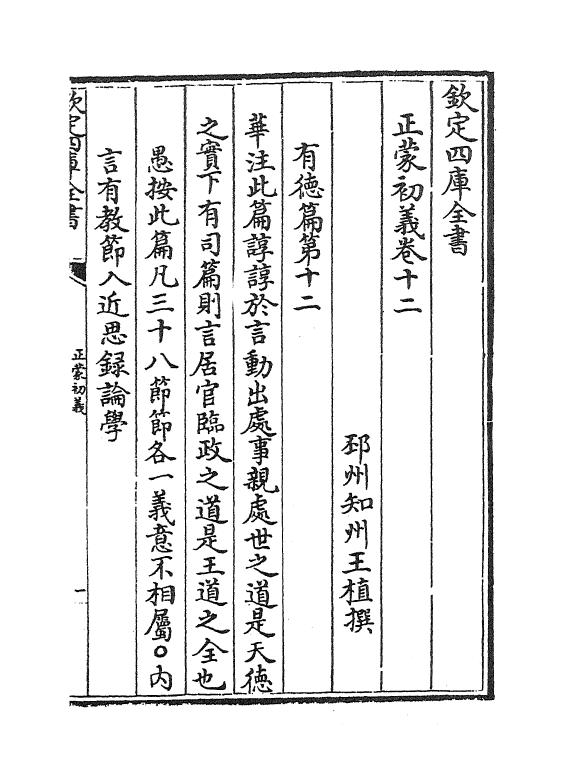 欽定四庫全書
正蒙初義卷十二
邳州知州王植撰
有德篇第十二
華注此篇諄諄於言動出處事親處世之道是天德
之實下有司篇則言居官臨政之道是王道之全也
愚按此篇凡三十八節節各一義意不相屬○內
言有教節入近思録論學
欽定四庫全書
正蒙初義
一